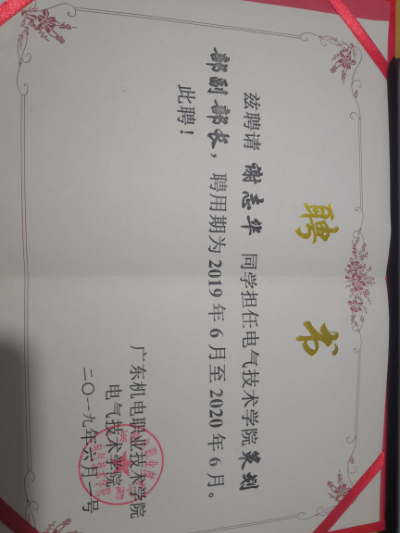 聘 书
兹聘请 谢志华 同学担任电气技术学院 策划
部副部长，聘用期为2019年6月至2020年6月。
此聘！
广东机电职业技术学院
电气技术学院
二〇一九年六月一号